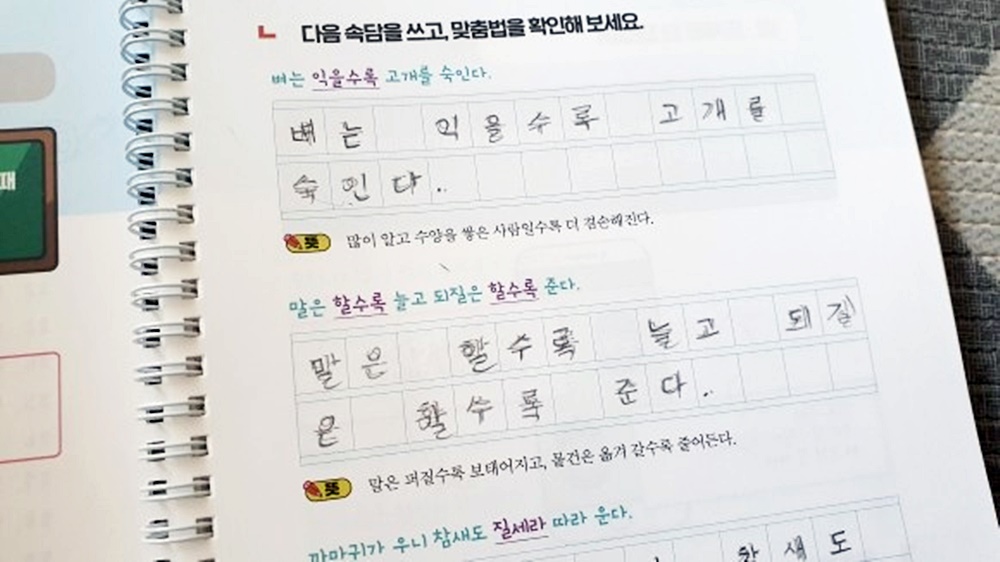 ㄴ 다음 속담을 쓰고, 맞춤법을 확인해 보세요.
벼는 익을수록 고개를 숙인다.
벼는 익을수록 고개를
숙인다.
뜻 많이 알고 수양을 쌓은 사람일수록 더 겸손해진다.
말은 할수록 늘고 되질은 할수록 준다.
말은 할수록 늘고 되질
은 할수록 준다.
뜻 말은 퍼질수록 보태어지고, 물건은 옮겨 갈수록 줄어든다.
까마귀가 우니 참새도 질세라 따라 운다.
참새도